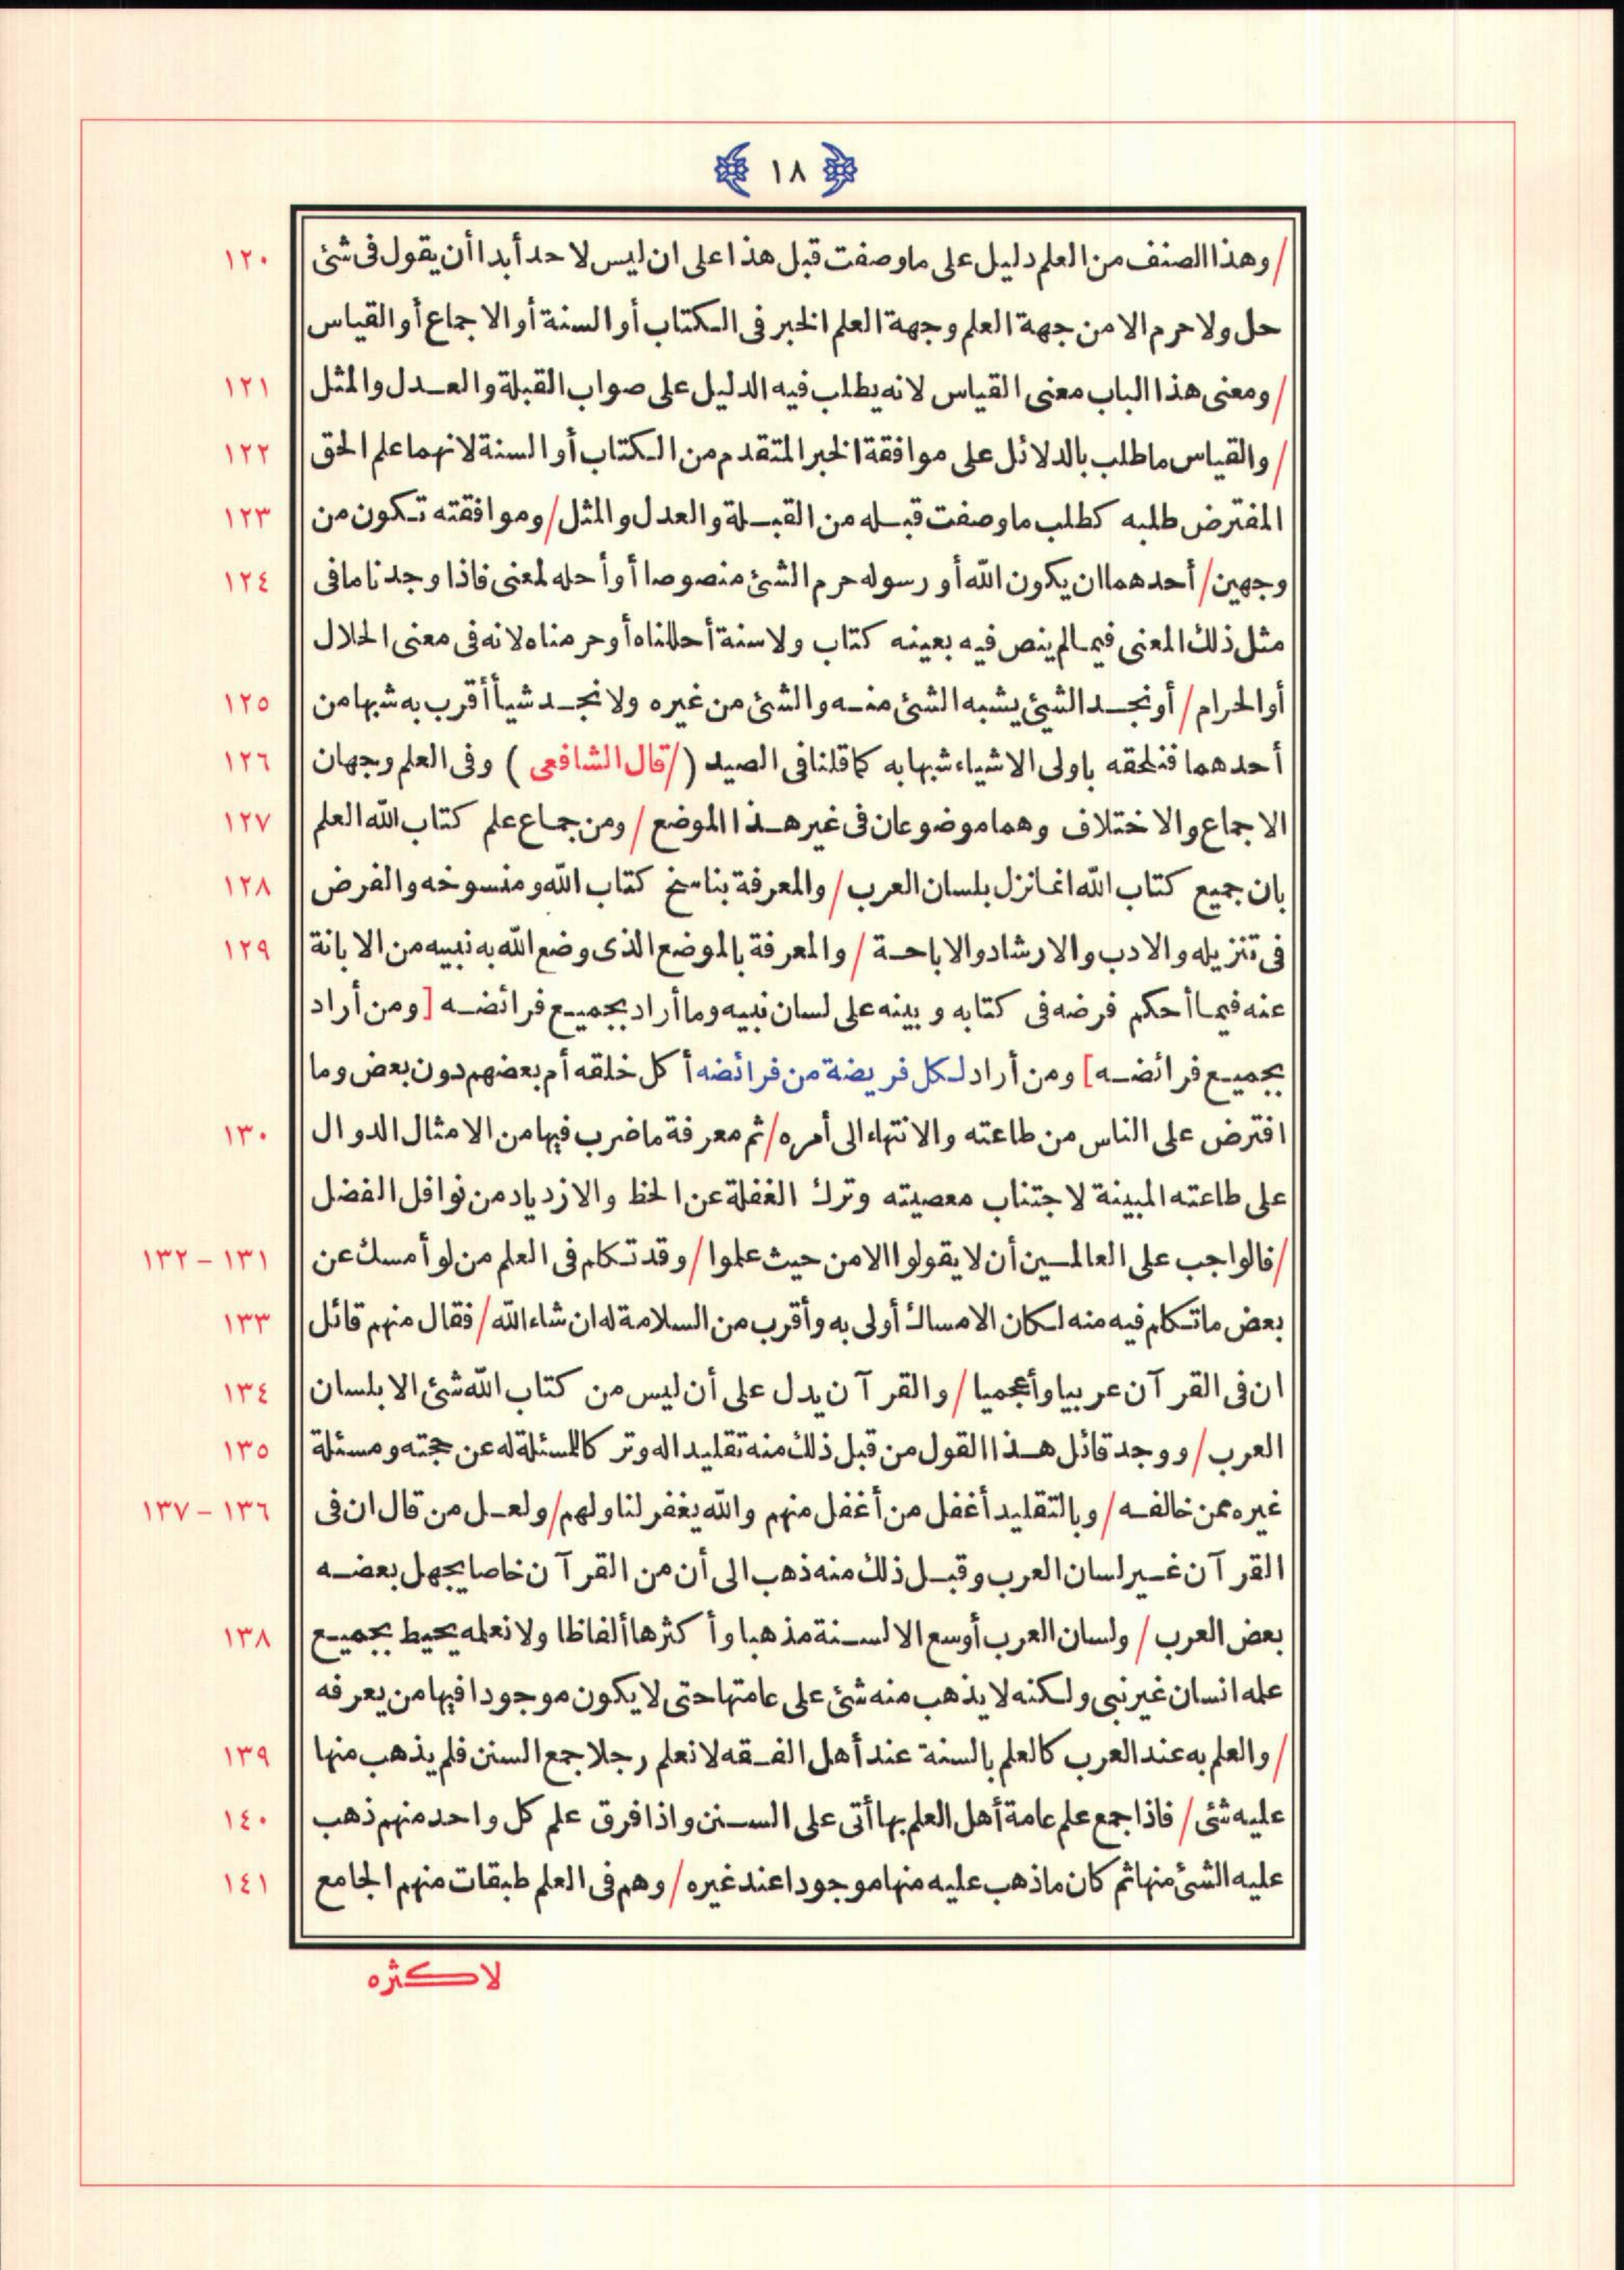 ١٨
/ وهذا الصنف من العلم دليل على ما وصفت قبل هذا على ان ليس لاحد أبدا أن يقول فى شئ ١٢٠
حل ولا حرم الا من جهة العلم وجهة العلم الخبر فى الكتاب أو السنة أو الاجماع أو القياس
/ ومعنى هذا الباب معنى القياس لانه يطلب فيه الدليل على صواب القبلة والعدل والمثل ١٢١
/ والقياس ما طلب بالدلائل على موافقة الخبر المتقدم من الكتاب أو السنة لانهما علم الحق ١٢٢
المفترض طلبه كطلب ما وصفت قبله من القبلة والعدل والمثل / وموافقته تكون من ١٢٣
وجهين / أحدهما ان يكون الله أو رسوله حرم الشئ منصوصا أو أحله لمعنى فاذا وجدنا ما فى ١٢٤
مثل ذلك المعنى فيما لم ينص فيه بعينه كتاب ولا سنة أحللناه أو حرمناه لانه فى معنى الحلال
أو الحرام / أو نجد الشئ يشبه الشئ منه والشئ من غيره ولا نجد شيأ أقرب به شبها من ١٢٥
أحدهما فنلحقه باولى الاشياء شبها به كما قلنا فى الصيد ( / قال الشافعى ) وفى العلم وجهان ١٢٦
الاجماع والاختلاف وهما موضوعان فى غير هذا الموضع / ومن جماع علم كتاب الله العلم ١٢٧
بان جميع كتاب الله انما نزل بلسان العرب / والمعرفة بناسخ كتاب الله ومنسوخه والفرض ١٢٨
فى تنزيله والادب والارشاد والاباحة / والمعرفة بالموضع الذى وضع الله به نبيه من الابانة ١٢٩
عنه فيما أحكم فرضه فى كتابه وبينه على لسان نبيه وما أراد بجميع فرائضه [ ومن أراد
بجميع فرائضه ] ومن أراد لكل فريضة من فرائضه أكل خلقه أم بعضهم دون بعض وما
افترض على الناس من طاعته والانتهاء الى أمره / ثم معرفة ما ضرب فيها من الامثال الدوال ١٣٠
على طاعته المبينة لاجتناب معصيته وترك الغفلة عن الحظ والازدياد من نوافل الفضل
/ فالواجب على العالمين أن لا يقولوا الا من حيث علموا / وقد تكلم فى العلم من لو أمسك عن ١٣١ - ١٣٢
بعض ما تكلم فيه منه لكان الامساك أولى به وأقرب من السلامة له ان شاء الله / فقال منهم قائل ١٣٣
ان فى القرآن عربيا وأعجميا / والقرآن يدل على أن ليس من كتاب الله شئ الا بلسان ١٣٤
العرب / ووجد قائل هذا القول من قبل ذلك منه تقليدا له وتركا للمسئلة له عن حجته ومسئلة ١٣٥
غيره ممن خالفه / وبالتقليد أغفل من أغفل منهم والله يغفر لنا ولهم / ولعل من قال ان فى ١٣٦ - ١٣٧
القرآن غير لسان العرب وقبل ذلك منه ذهب الى أن من القرآن خاصا يجهل بعضه
بعض العرب / ولسان العرب أوسع الالسنة مذهبا وأكثرها ألفاظا ولا نعلمه يحيط بجميع ١٣٨
علمه انسان غير نبى ولكنه لا يذهب منه شئ على عامتها حتى لا يكون موجودا فيها من يعرفه
/ والعلم به عند العرب كالعلم بالسنة عند أهل الفقه لا نعلم رجلا جمع السنن فلم يذهب منها ١٣٩
عليه شئ / فاذا جمع علم عامة أهل العلم بها أتى على السنن واذا فرق علم كل واحد منهم ذهب ١٤٠
عليه الشئ منها ثم كان ما ذهب عليه منها موجودا عند غيره / وهم فى العلم طبقات منهم الجامع ١٤١
لاكثره